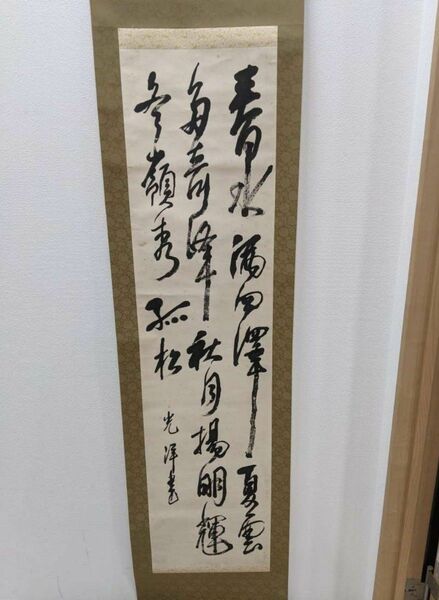 春水滿四澤夏雲
多奇峰秋月揚明輝
冬嶺秀孤松
光洋書